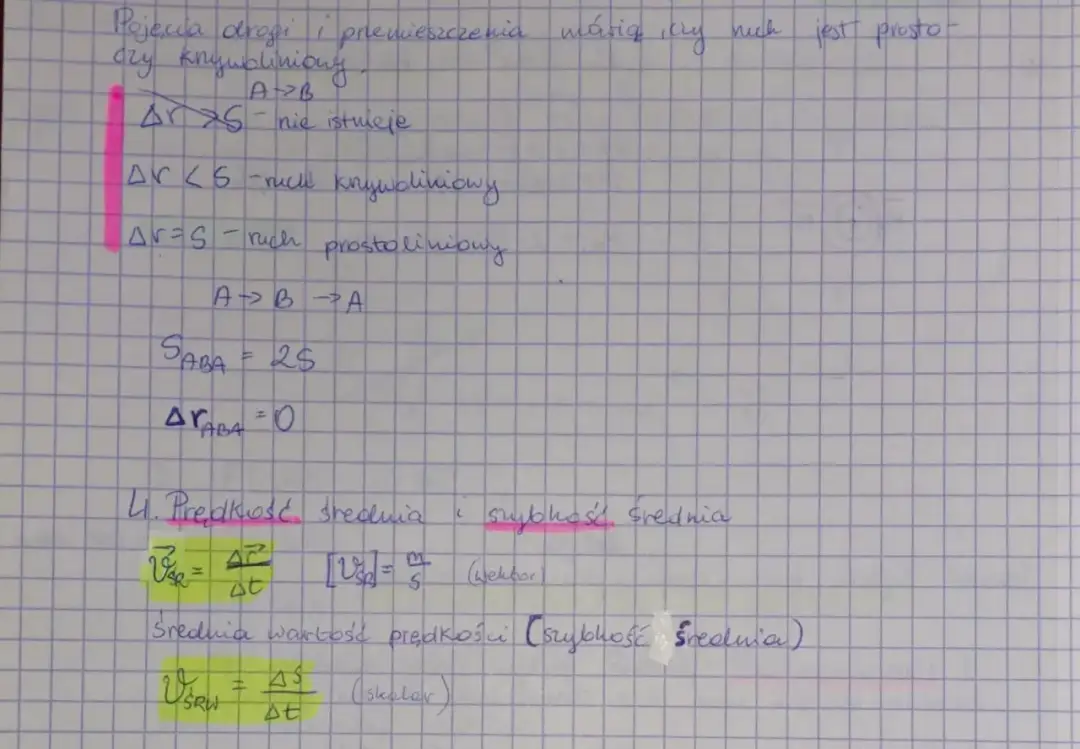 Pojęcia drogi i przemieszczenia mówią, czy ruch jest prosto-
czy krzywoliniowy.
A→B
Δr > S - nie istnieje
Δr < S - ruch krzywoliniowy
Δr = S - ruch prostoliniowy
A → B → A
S_ABA = 2S
Δr_ABA = 0
4. Prędkość średnia i szybkość średnia
v⃗_ŚR = Δr⃗/Δt [v_ŚR] = m/s (wektor)
Średnia wartość prędkości (szybkość średnia)
v_ŚRW = ΔS/Δt (skalar)